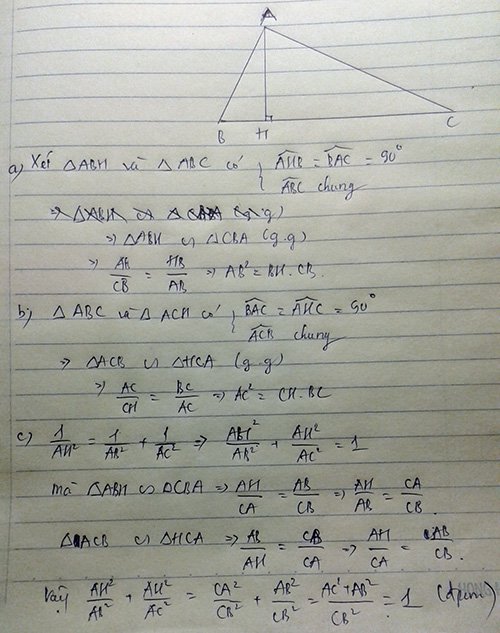 A
B H C
a) Xét △ABH và △ABC có { AHB = BAC = 90°
ABC chung
⇒ △ABH ∽ △CBA (g.g)
⇒ △ABH ∽ △CBA (g.g)
⇒ AB/CB = HB/AB ⇒ AB² = BH.CB.
b) △ABC và △ACH có { BAC = AHC = 90°
ACB chung
⇒ △ACB ∽ △HCA (g.g)
⇒ AC/CH = BC/AC ⇒ AC² = CH.BC
c) 1/AH² = 1/AB² + 1/AC² ⇒ AH²/AB² + AH²/AC² = 1
mà △ABH ∽ △CBA ⇒ AH/CA = AB/CB ⇒ AH/AB = CA/CB.
△ACB ∽ △HCA ⇒ AB/AH = CB/CA ⇒ AH/CA = AB/CB.
Vậy AH²/AB² + AH²/AC² = CA²/CB² + AB²/CB² = AC²+AB²/CB² = 1 (đpcm)